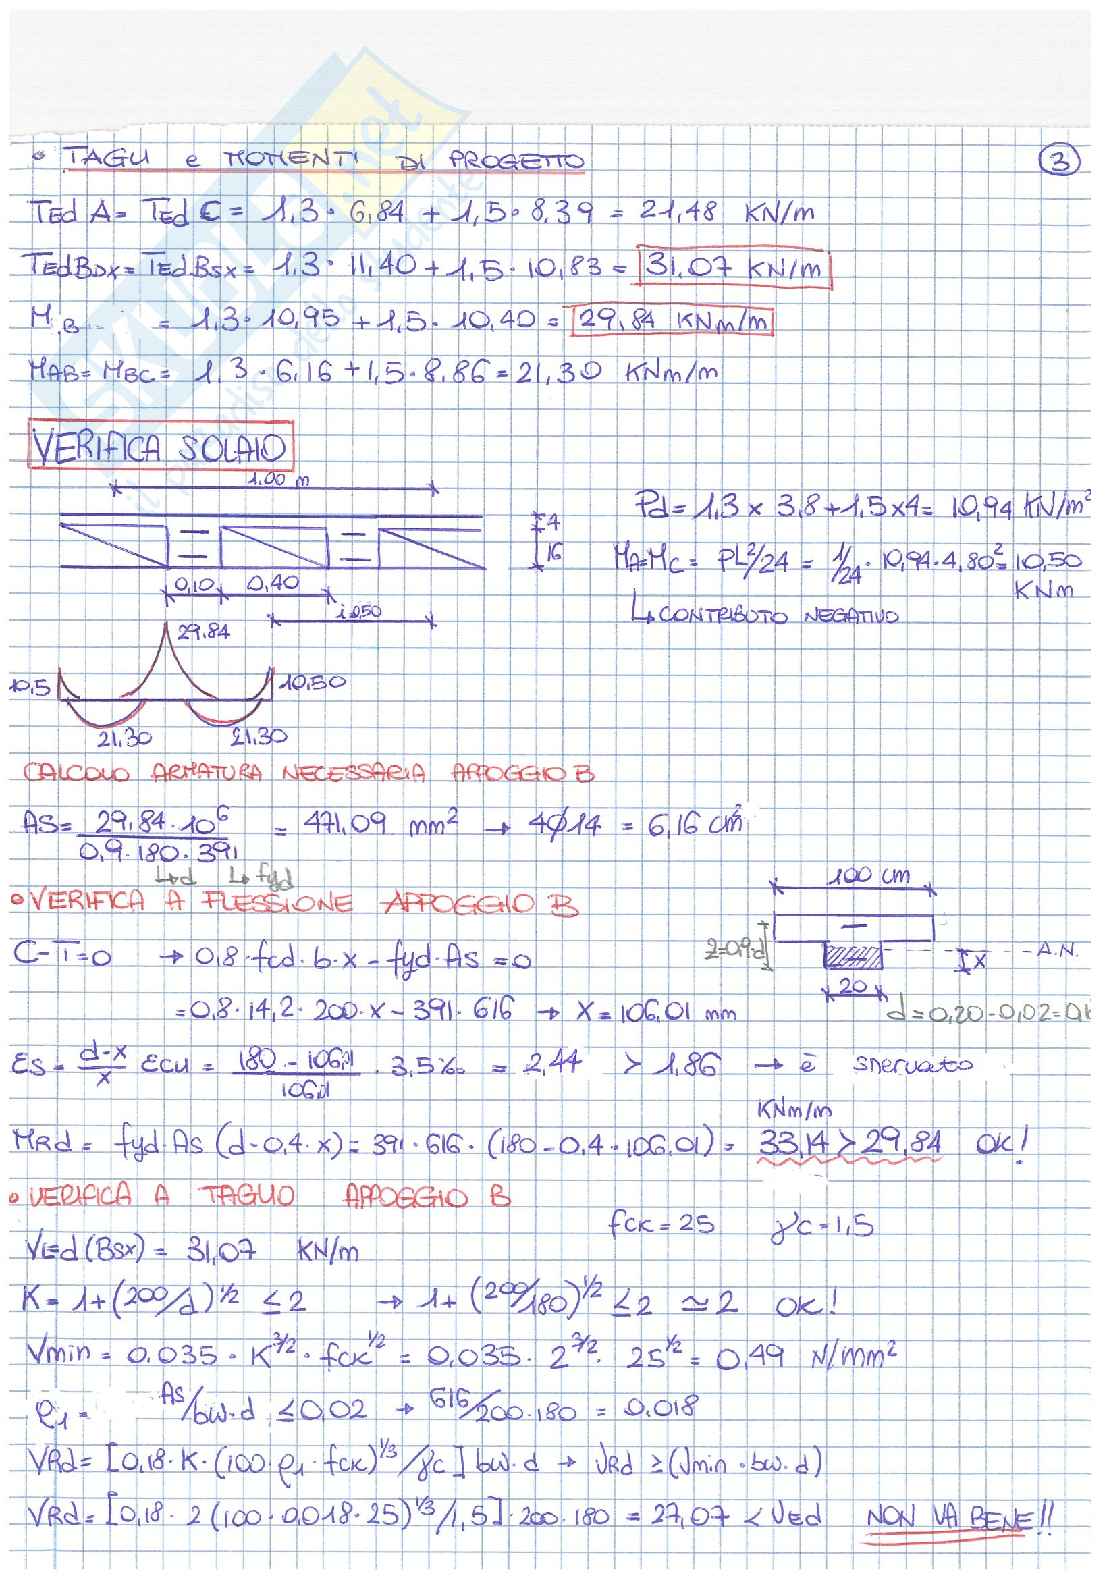 • TAGLI e MOMENTI DI PROGETTO
3
TEd A = TEd C = 1,3 · 6,84 + 1,5 · 8,39 = 21,48 KN/m
TEdBDX = TEdBSX = 1,3 · 11,40 + 1,5 · 10,83 = 31,07 KN/m
M,B = 1,3 · 10,95 + 1,5 · 10,40 = 29,84 KNm/m
MAB = MBC = 1,3 · 6,16 + 1,5 · 8,86 = 21,30 KNm/m
VERIFICA SOLAIO
1.00 m
4
16
0,10 0,40
i 0.50
Pd = 1,3 x 3,8 + 1,5 x 4 = 10,94 KN/m²
MA = MC = PL²/24 = 1/24 · 10,94 · 4,80² = 10,50
KNm
↳ CONTRIBUTO NEGATIVO
29.84
10,5
10,50
21,30 21,30
CALCOLO ARMATURA NECESSARIA APPOGGIO B
AS = 29,84 · 10⁶ / 0,9 · 180 · 391 = 471,09 mm² → 4ϕ14 = 6,16 cm²
↳ d ↳ fyd
• VERIFICA A FLESSIONE APPOGGIO B
100 cm
Z=0,9·d
A.N.
x
20
C-T=0 → 0,8 · fcd · b · x - fyd · As = 0
= 0,8 · 14,2 · 200 · x - 391 · 616 → X = 106,01 mm
d = 0,20 - 0,02 =
Es = d-x / x Ecu = 180 - 106,1 / 106,1 · 3,5‰ = 2,44 > 1,86 → è snervato
KNm/m
MRd = fyd · As (d - 0,4 · x) = 391 · 616 · (180 - 0,4 · 106,01) = 33,14 > 29,84 OK!
• VERIFICA A TAGLIO APPOGGIO B
fck = 25 γc = 1,5
VEd (BSX) = 31,07 KN/m
K = 1+(200/d)^1/2 ≤ 2 → 1+(200/180)^1/2 ≤ 2 ≃ 2 OK!
Vmin = 0.035 · K^3/2 · fck^1/2 = 0.035 · 2^3/2 · 25^1/2 = 0,49 N/mm²
ρ1 = As/bw·d ≤ 0,02 → 616/200·180 = 0.018
VRd = [0,18 · K · (100 · ρ1 · fck)^1/3 / γc] bw · d → VRd ≥ (Vmin · bw · d)
VRd = [0,18 · 2 (100 · 0,018 · 25)^1/3 / 1,5] · 200 · 180 = 27,07 < VEd NON VA BENE!!